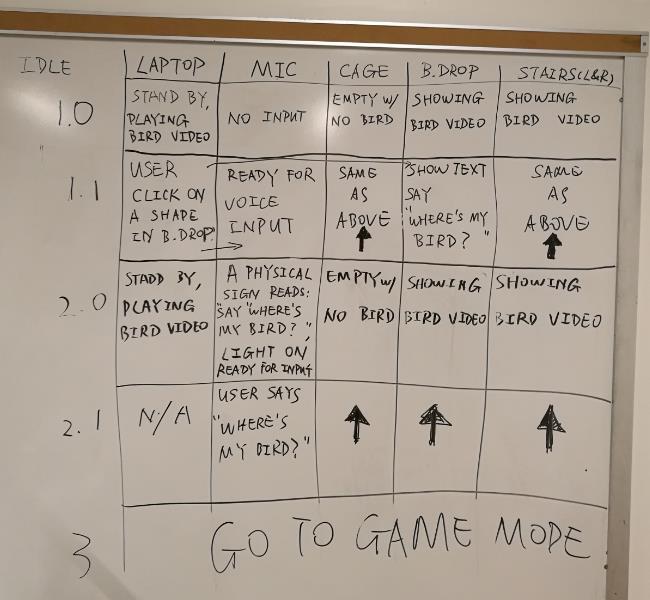 IDLE
LAPTOP
MIC
CAGE
B.DROP
STAIRS(L&R)
1.0
STAND BY,
PLAYING
BIRD VIDEO
NO INPUT
EMPTY W/
NO BIRD
SHOWING
BIRD VIDEO
SHOWING
BIRD VIDEO
1.1
USER
CLICK ON
A SHAPE
IN B.DROP.
READY FOR
VOICE
INPUT
SAME
AS
ABOVE
"SHOW TEXT
SAY
"WHERE'S MY
BIRD?"
SAME
AS
ABOVE
2.0
STADD BY,
PLAYING
BIRD VIDEO
A PHYSICAL
SIGN READS:
"SAY "WHERE'S
MY BIRD?",
LIGHT ON
READY FOR INPUT
EMPTY W/
NO BIRD
SHOWING
BIRD VIDEO
SHOWING
BIRD VIDEO
2.1
N/A
USER SAYS
"WHERE'S
MY BIRD?"
3
GO TO GAME MODE